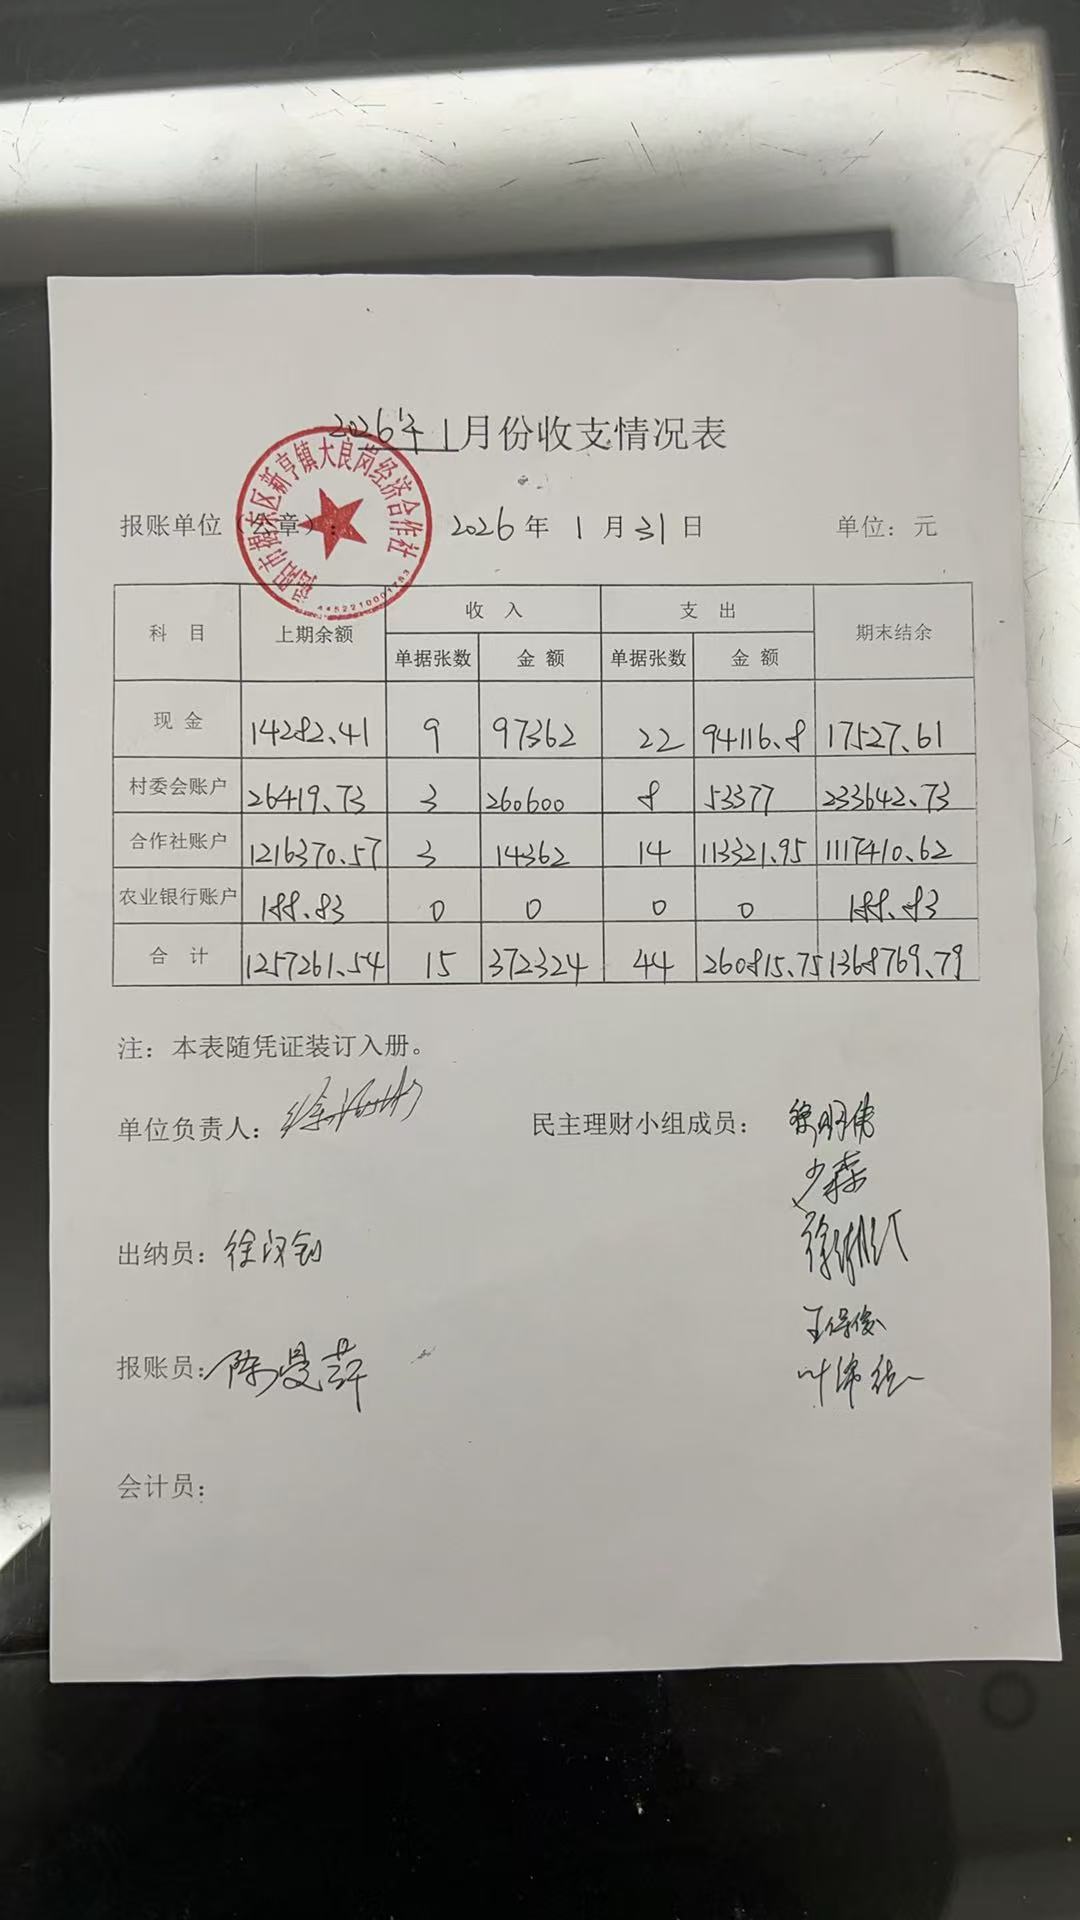 2026年1月份收支情况表
报账单位(公章): 2026年1月31日 单位：元
揭阳市揭东区新亨镇大良岗经济合作社
4452210001763
科目 上期余额 收入 支出 期末结余
单据张数 金额 单据张数 金额
现金 14282.41 9 97362 22 94116.8 17527.61
村委会账户 26419.73 3 260600 8 53377 233642.73
合作社账户 1216370.57 3 14362 14 113321.95 1117410.62
农业银行账户 188.83 0 0 0 0 188.83
合计 1257261.54 15 372324 44 260815.75 1368769.79
注：本表随凭证装订入册。
单位负责人： 民主理财小组成员：
少森
出纳员：徐
王保俊
报账员：陈曼萍
叶
会计员：